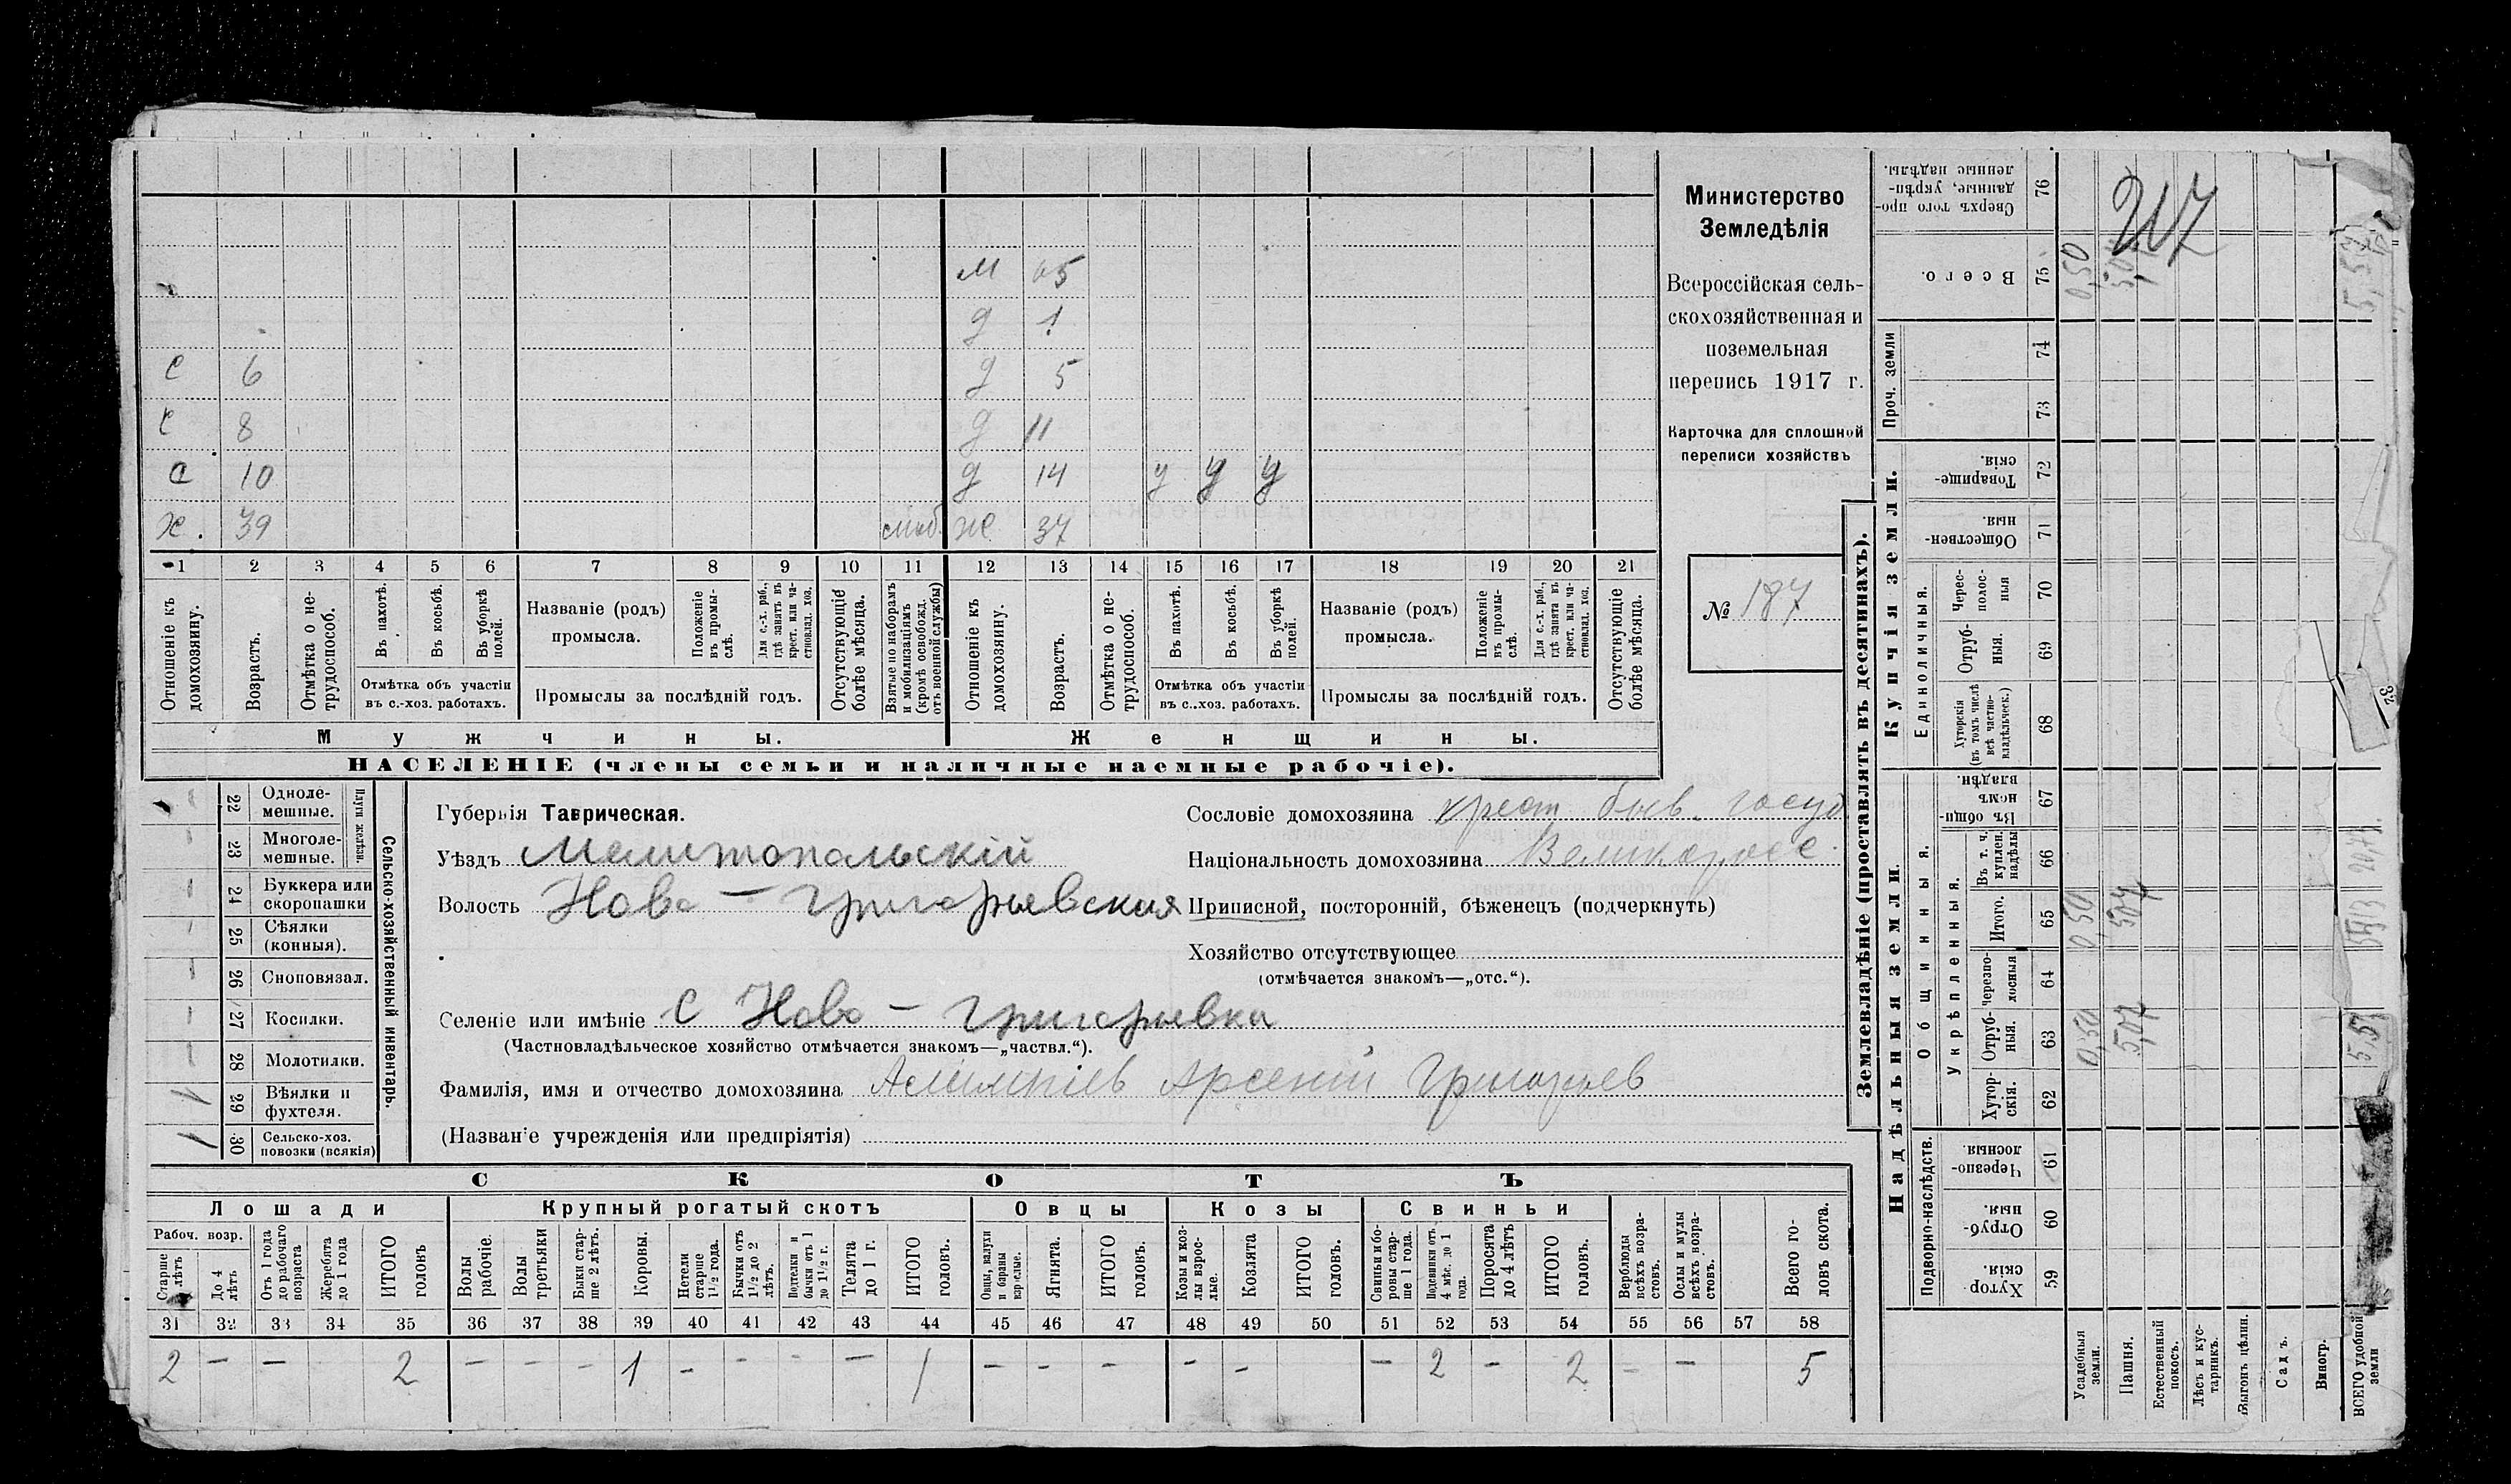 м 65
д 1
с 6 д 5
с 8 д 11
с 10 д 14 у у у
х. 39 моб. ж 37
1 2 3 4 5 6 7 8 9 10 11 12 13 14 15 16 17 18 19 20 21
Отношеніе къ домохозяину.
Возрастъ.
Отмѣтка о не-
трудоспособ.
Въ пахотѣ.
Въ косьбѣ.
Въ уборкѣ полей.
Отмѣтка объ участіи
въ с.-хоз. работахъ.
Названіе (родъ)
промысла.
Положеніе
въ промы-
слѣ.
Для с.-х. раб.,
гдѣ занятъ въ
крест. или ча-
стновлад. хоз.
Промыслы за послѣдній годъ.
Отсутствующіе
болѣе мѣсяца.
Взятые по наборамъ
и мобилизаціямъ
(кромѣ освобожд.
отъ военной службы)
Отношеніе къ
домохозяину.
Возрастъ.
Отмѣтка о не-
трудоспособ.
Въ пахотѣ.
Въ косьбѣ.
Въ уборкѣ
полей.
Отмѣтка объ участіи
въ с.-хоз. работахъ.
Названіе (родъ)
промысла.
Положеніе
въ промы-
слѣ.
Для с.-х. раб.,
гдѣ занята въ
крест. или ча-
стновлад. хоз.
Промыслы за послѣдній годъ.
Отсутствующіе
болѣе мѣсяца.
Мужчины. Женщины.
НАСЕЛЕНІЕ (члены семьи и наличные наемные рабочіе).
Министерство
Земледѣлія
Всероссійская сель-
скохозяйственная и
поземельная
перепись 1917 г.
Карточка для сплошной
переписи хозяйствъ
№ 187
22 Одноле-
мешные.
23 Многоле-
мешные.
Плуги желѣзн.
24 Буккера или
скоропашки
25 Сѣялки
(конныя).
26 Сноповязал.
27 Косилки.
28 Молотилки.
29 Вѣялки и
фухтеля.
30 Сельско-хоз.
повозки (всякія)
Сельско-хозяйственный инвентарь.
Губернія Таврическая.
Уѣздъ Мелитопольскій
Волость Ново-Григорьевская
Селеніе или имѣніе с Ново-Григорьевка
(Частновладѣльческое хозяйство отмѣчается знакомъ—„частвл.“).
Фамилія, имя и отчество домохозяина Арсеній Григорьев
(Названіе учрежденія или предпріятія)
Сословіе домохозяина крест. быв. госуд
Національность домохозяина Великоросс
Приписной, посторонній, бѣженец (подчеркнуть)
Хозяйство отсутствующее
(отмѣчается знакомъ—„отс.“).
СКОТЪ
Лошади Крупный рогатый скотъ Овцы Козы Свиньи
Рабоч. возр.
Старше
4 лѣтъ
До 4
лѣтъ
Отъ 1 года
до рабочаго
возраста
Жеребята
до 1 года
ИТОГО
головъ
Волы
рабочіе.
Волы
третьяки
Быки стар-
ше 2 лѣтъ.
Коровы.
Нетели
старше
1½ года.
Бычки отъ
1½ до 2
лѣтъ.
Подтелки и
бычки отъ 1
до 1½ г.
Телята
до 1 г.
ИТОГО
головъ.
Овцы, валухи
и бараны
взрослые.
Ягнята.
ИТОГО
головъ.
Козы и коз-
лы взрос-
лые.
Козлята
ИТОГО
головъ.
Свиньи и бо-
ровы стар-
ше 1 года.
Подсвинки отъ
4 мѣс. до 1
года.
Поросята
до 4 лѣтъ
ИТОГО
головъ.
Верблюды
всѣхъ возра-
стовъ.
Ослы и мулы
всѣхъ возра-
стовъ.
Всего го-
ловъ скота.
31 32 33 34 35 36 37 38 39 40 41 42 43 44 45 46 47 48 49 50 51 52 53 54 55 56 57 58
2 — — 2 — — — 1 — — — — 1 — — — — — — 2 — 2 — — 5
Землевладѣніе (проставлять въ десятинахъ).
Надѣльныя земли. Купчія земли. Проч. земли
Подворно-наслѣдств. Общинныя. Укрѣпленныя. Единоличныя.
Сверхъ того про-
данные, укрѣп-
ленные надѣлы.
76
Всего.
75
74
73
Товарище-
скія.
72
Обществен-
ныя.
71
Черес-
полос-
ныя
70
Отруб-
ныя.
69
Хуторскія
(въ томъ числѣ
всѣ частно-
владѣльческ.)
68
Въ общи-
номъ
владѣн.
67
Въ т. ч.
куплен.
надѣлы
66
Итого.
65
черезпо-
лосныя
64
Отруб-
ныя.
63
Хутор-
скія.
62
Черезпо-
лосныя
61
Отруб-
ныя.
60
Хутор-
скія.
59
Усадебныя
земли.
Пашня.
Естественный
покосъ.
Лѣсъ и кус-
тарникъ.
Выгонъ цѣлин.
Садъ.
Виногр.
ВСЕГО удобной
земли
217
0,50 5,07 5,57
0,50 5,07
0,50 5,07 5,57